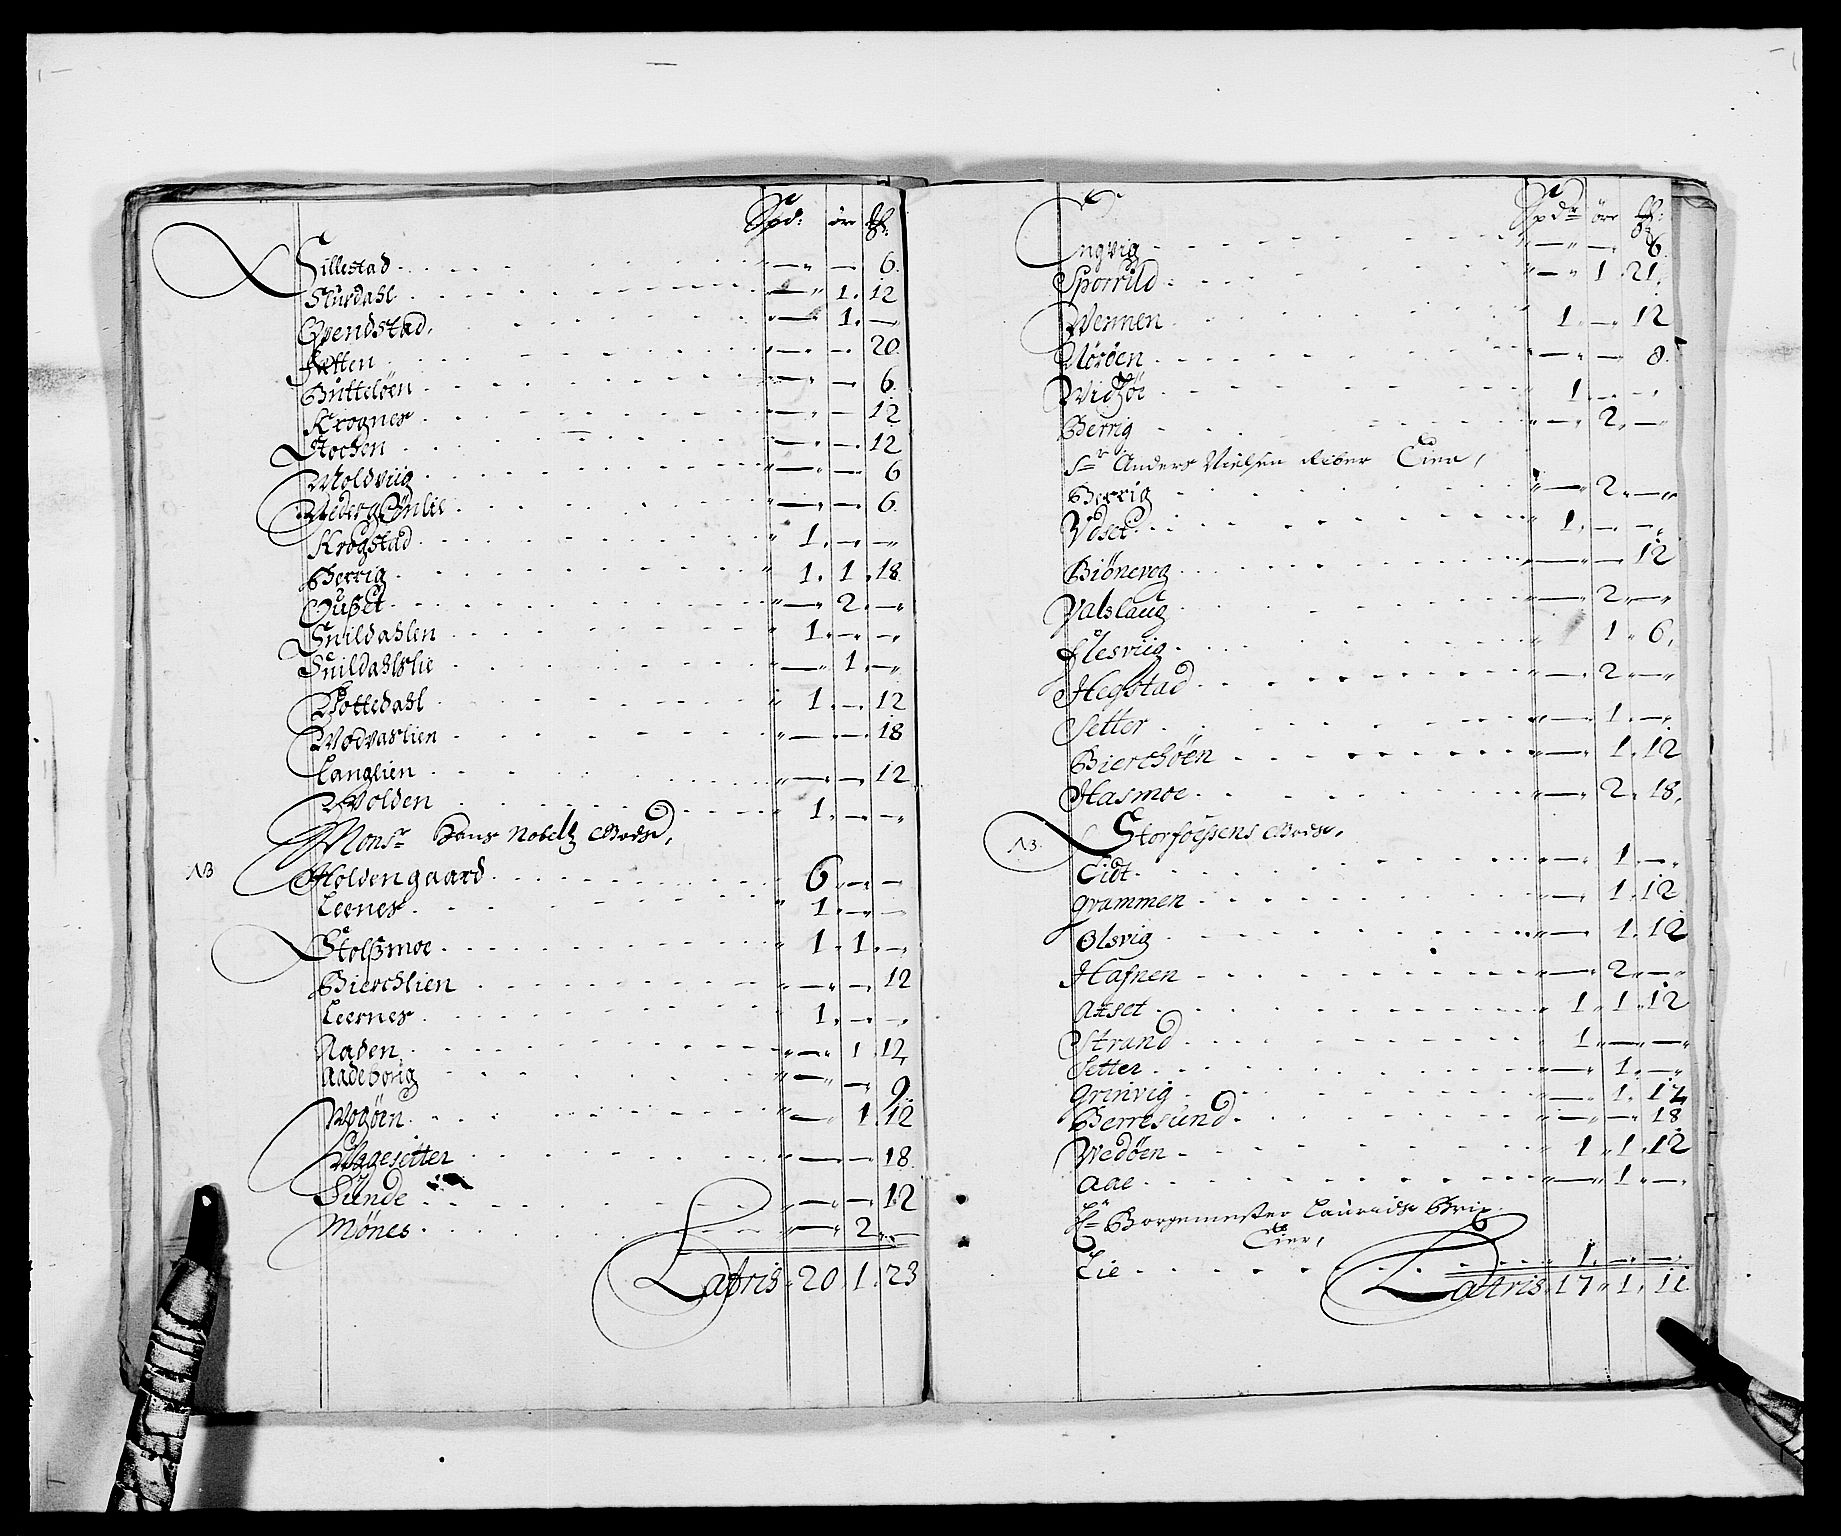 Spd: öre
Sillestad - " - 6.
Sturdahl - " 1. 12
Qvendstad. - " 1. -
Fætten " - " - 20.
Büttelöen - " - 6.
Krognes " - " - 12
Aochen " - " - 12
Moldviig " - " - 6
Krogstad " 1. - " -
Berrig " 1. 1. 18
Snildahlen " 1. " - " - "
Snildahlslie " - " 1. - "
Pottedahl " 1. " - . 12
Wodvaslien " - " - . 18
Langlien " - " - . 12
Wolden " 1. " - " -
Monsr Hans Nobels Gods,
NB Holdengaard 6 " - " -
Leenes " 1. " - " -
Stolsmoe " 1. 1. - "
Bierchlien " - " - 12
Leernes " 1. " - " -
Aaden " - " 1. 12
Aadeborig " - " - 9.
Wogöen " - " 1. 12
Waagesetter " - " - 18.
Sunde " - " - . 12
Mönes " - " 2 " -
Latris . 20. 1. 23
Spdr öre
Engvig " - " - 6.
Sporrild " - " 1. 21.
Wennen 1. " - " 12
Nöröen " - " - 8.
Widöe 1. - " -
Berrig " - " 2. - "
Sr Anders Nielsen Riber Eier,
Berrig " - " 2. " - "
Ydset 1. - " -
Biönereg - " - 12
Valslaug " - " 2. " - "
Flesviig " 1. " 6.
Hegstad " - " 2 " - "
Setter " - " 1. - "
Bierchöen " - " 1. 12
Hasmoe " - " 2 " 18.
NB. Storfosens Gods.
Eidt. " - " 1. - "
Grammen " - " 1. 12
Olsvig " - " 1. 12
Hafnen " - " 2 " - "
Atset 1. 1. 12
Strand 1. " - " - "
Setter " - " 1. " - "
Grinvig " - " 1. 12
Berresund. " - " - " 18
Wedöen " 1. 1. 12
Aae " - " 1. " - "
Hr Borgemester Laurids Brix
Eier,
Lie 1. " - " -
Latris. 17 " 1. 11.